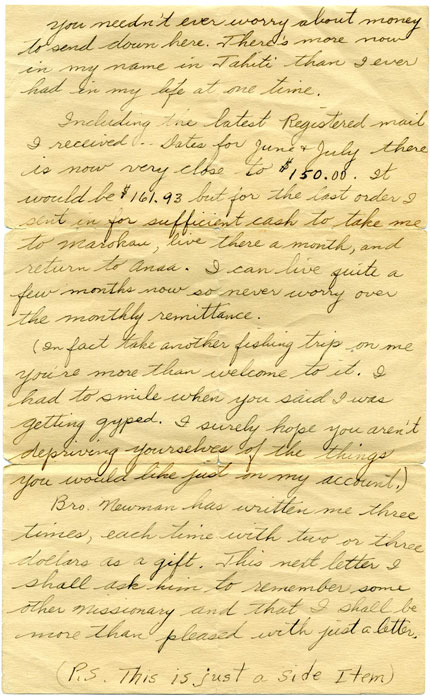 You needn't ever worry about money
to send down here. There's more now
in my name in Tahiti than I ever
had in my life at one time.
Including the latest Registered mail
I received.. Dates for June & July there
is now very close to $150.00. It
would be $161.93 but for the last order I
sent in for sufficient cash to take me
to Marokau, live there a month, and
return to Anaa. I can live quite a
few months now so never worry over
the monthly remittance.
(In fact take another fishing trip on me
you're more than welcome to it. I
had to smile when you said I was
getting gyped. I surely hope you aren't
depriving yourselves of the things
you would like just on my account.)
Bro. Newman has written me three
times, each time with two or three
dollars as a gift. This next letter I
shall ask him to remember some
other missionary and that I shall be
more than pleased with just a letter.
(P.S. This is just a side Item)